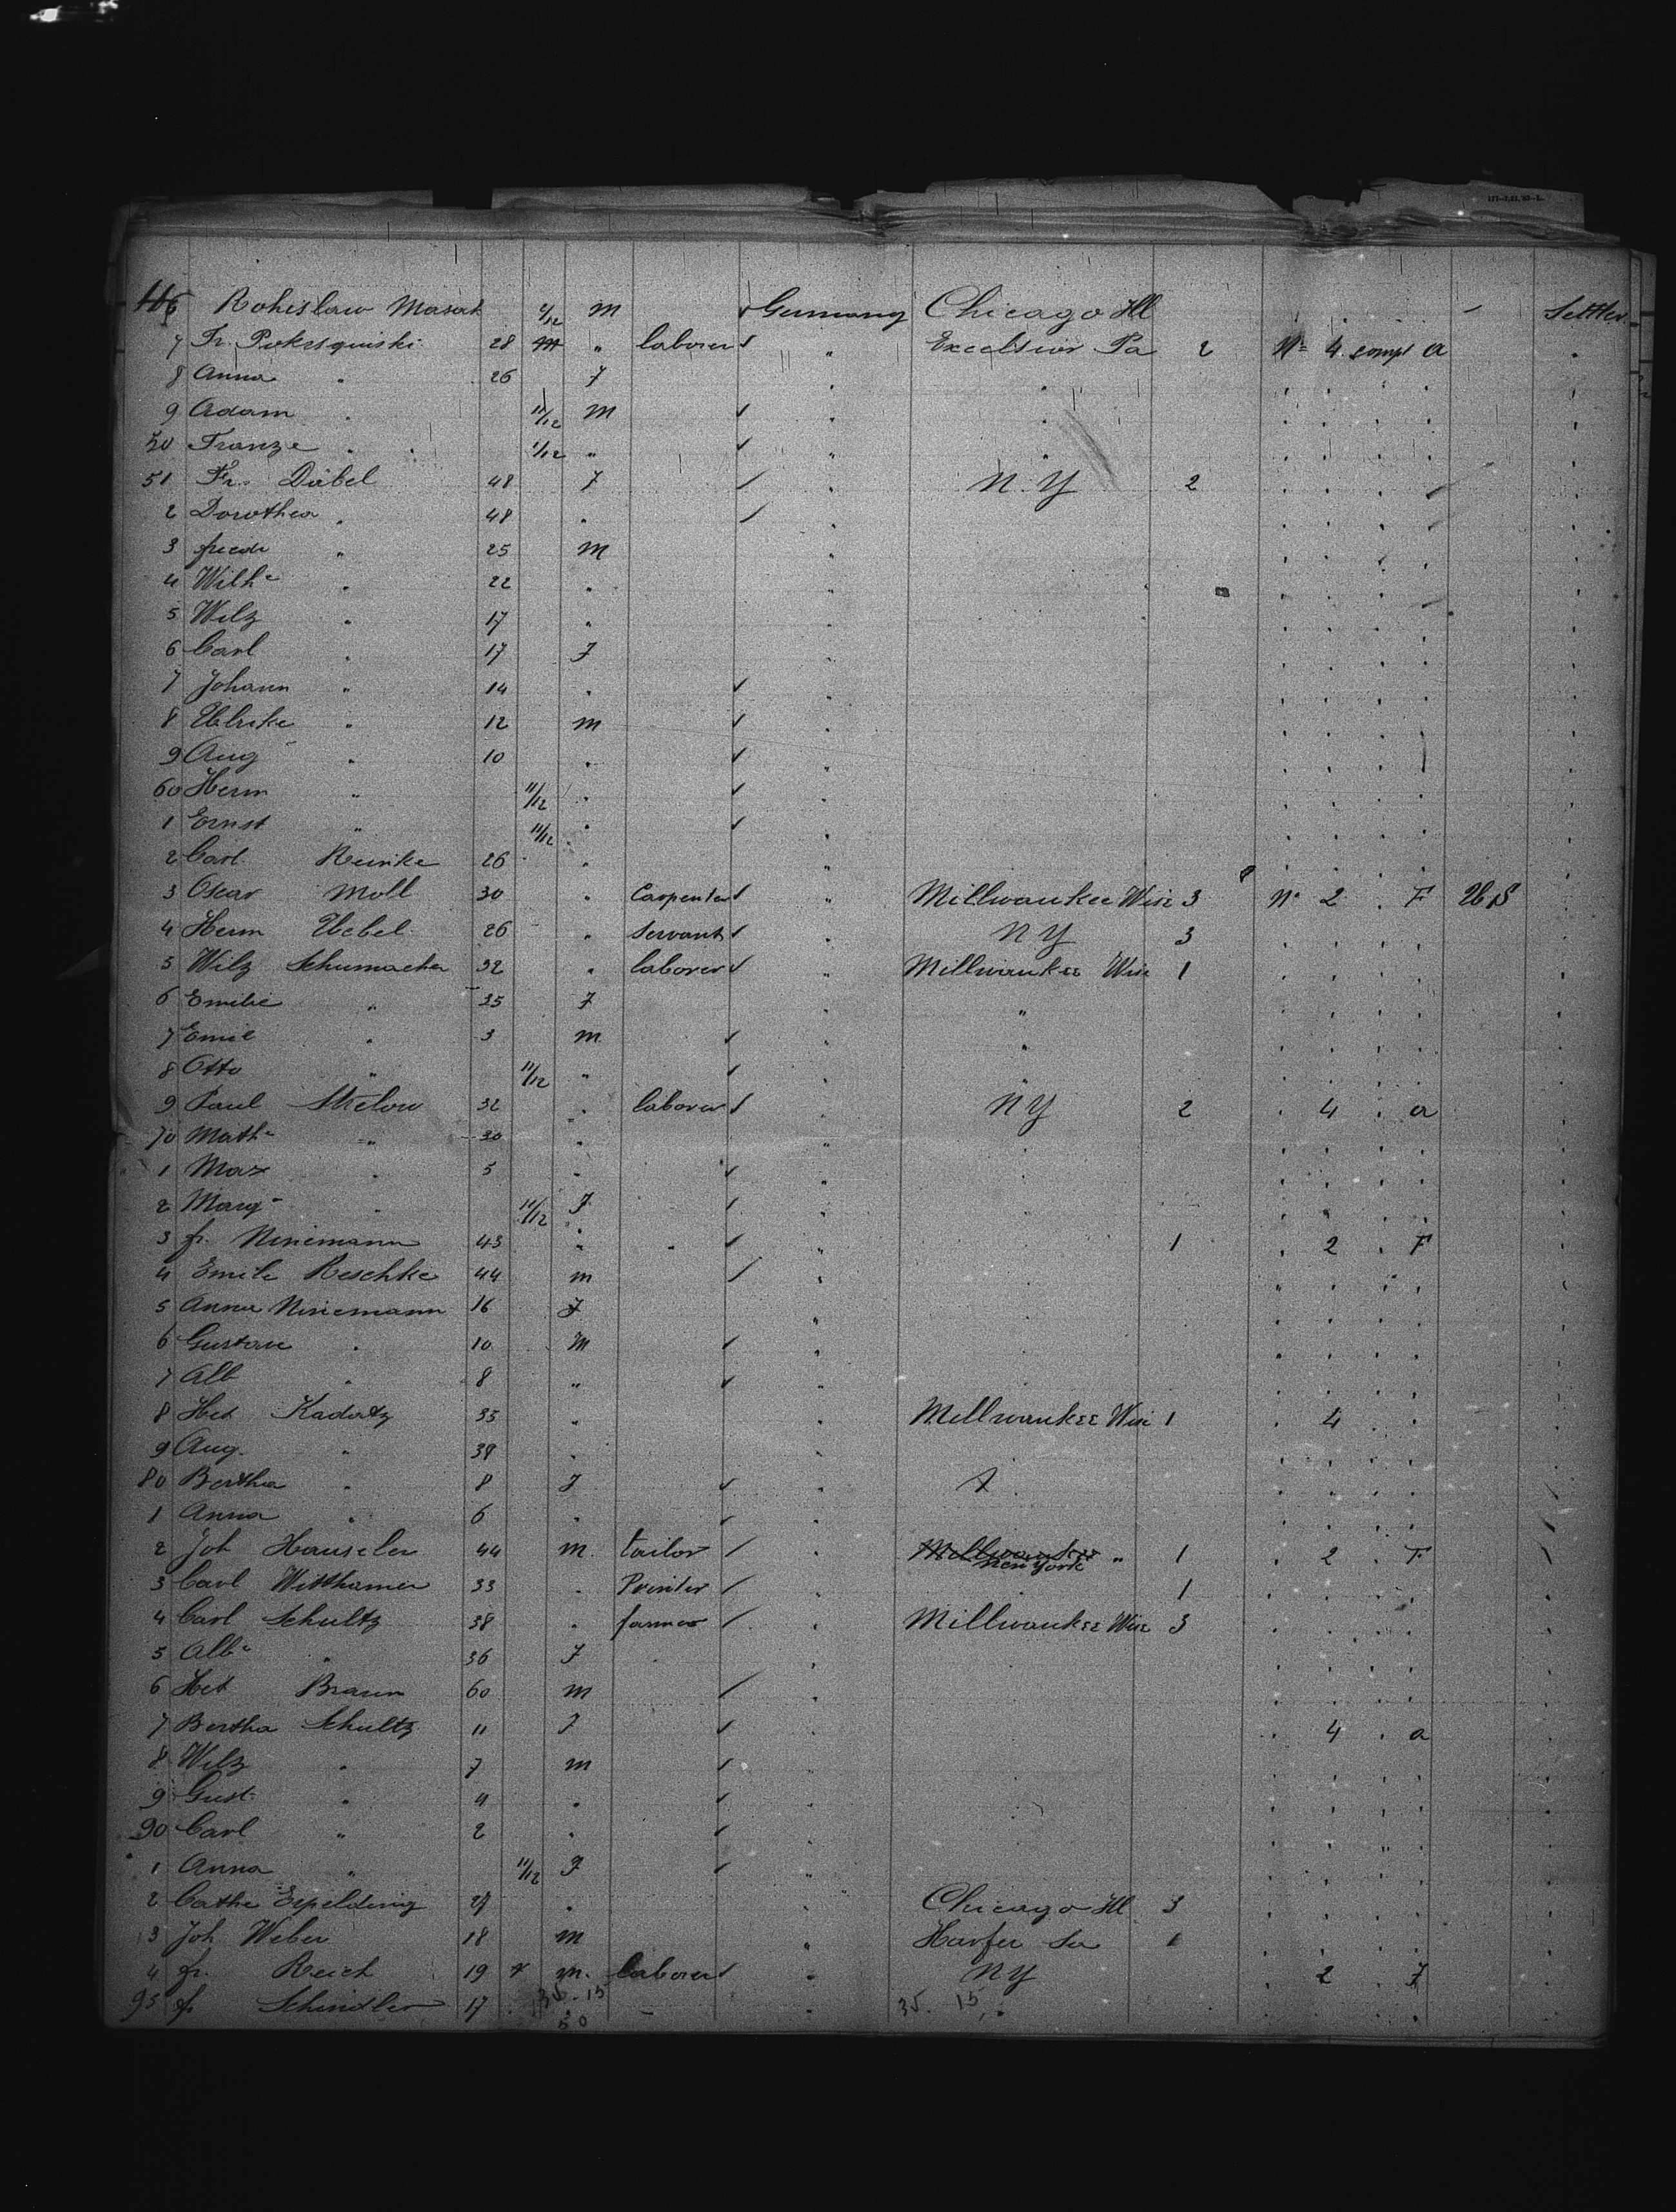 6 Rohislaw Masat 4/12 M Germany Chicago Ill Settler
7 Fr. 28 " laborer " Excelsior Pa 2 No 4 compt a
8 Anna " 26 F
9 Adam " 11/12 M
50 Franze " 1/12 "
51 Fr. Dübel 48 F N.Y 2
2 Dorothea " 48 "
3 " 25 M
4 Wilhe " 22 "
5 Wilz " 17 "
6 Carl " 17 F
7 Johann " 14 "
8 Ulrike " 12 m
9 Aug " 10 "
60 Herm " 11/12 "
1 Ernst " 11/12 "
2 Carl Reinke 26 "
3 Oscar Moll 30 " Carpenter " Millwaukee Wisc 3 No 2 . F
4 Herm Uebel 26 " Servant " NY 3
5 Wilz Schumacher 32 " laborer " Millwaukee Wisc 1
6 Emilie " 35 F "
7 Emil " 3 m "
8 Otto " 11/12 " "
9 Paul 32 " laborer NY 2 . 4 . a
70 Mathe " 30 "
1 Max " 5 "
2 Marg " 11/12 F
3 fr. Ninemann 43 " 1 . 2 . F
4 Emile Reschke 44 m
5 Anna Ninemann 16 F
6 Gustave " 10 M
7 Alb " 8 "
8 Kadatz 35 " Millwaukee Wisc 1 . 4 . .
9 Aug. " 39 "
80 Bertha " 8 F
1 Anna " 6 "
2 Joh Hauseler 44 m. tailor Millwaukee " New York 1 . 2 . F
3 Carl Witthamer 33 " Printer 1
4 Carl Schultz 38 " farmer Millwaukee Wisc 3
5 Albe " 36 F
6 Braun 60 m
7 Bertha Schultz 11 F . 4 . a
8 Wilz " 7 m
9 Gust. " 4 "
90 Carl " 2 "
1 Anna " 11/12 F
2 Cathe Erpelding 27 " Chicago Ill 3
3 Joh Weber 18 m
4 fr. Reich 19 m. laborer NY . 2 . F
95 fr. Schindler 17 " 35. 15